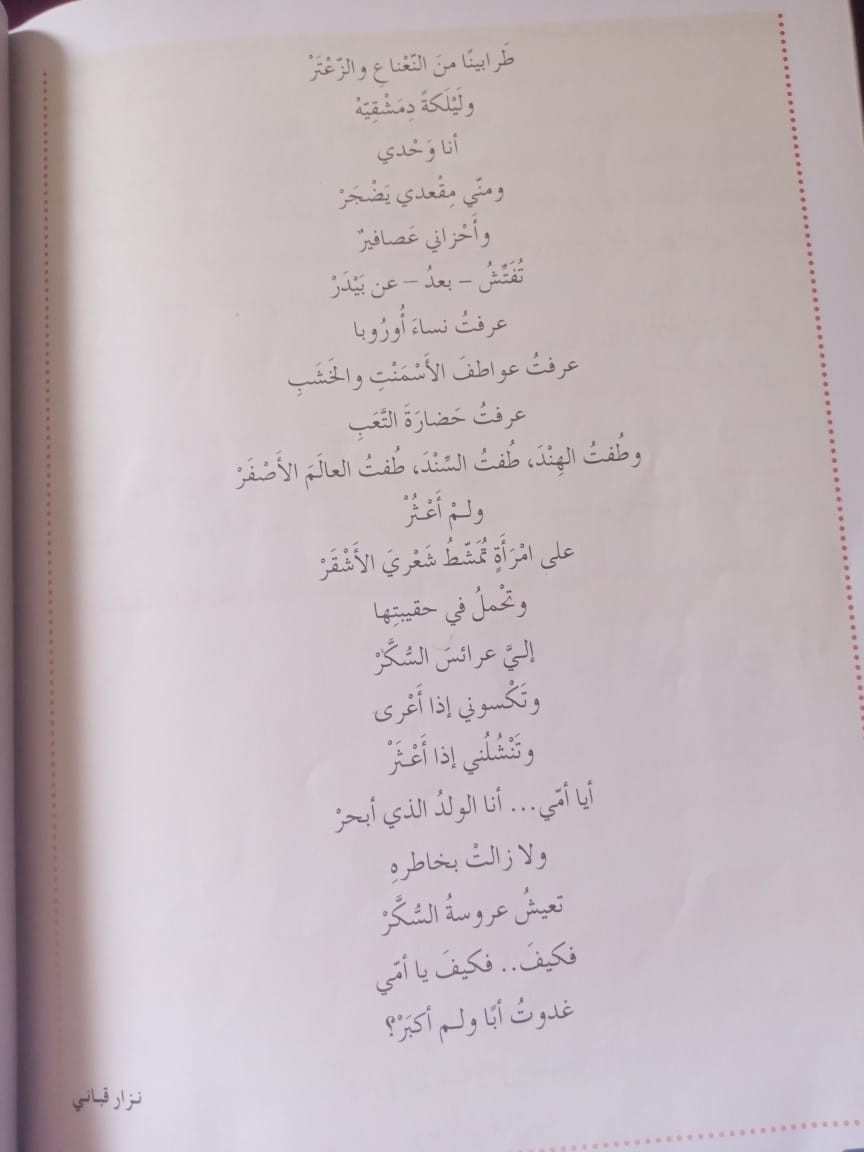 طَرابينًا منَ النّعْناعِ والزّعْتَرْ
ولَيْلَكةً دِمَشْقِيّهْ
أنا وَحْدي
ومنّي مِقْعدي يَضْجَرْ
وأَحْزاني عَصافيرٌ
تُفَتِّشُ – بعدُ – عن بَيْدَرْ
عرفتُ نساءَ أُورُوبا
عرفتُ عواطفَ الأَسْمَنْتِ والخَشَبِ
عرفتُ حَضارَةَ التَّعَبِ
وطُفتُ الهِنْدَ، طُفتُ السِّنْدَ، طُفتُ العالَمَ الأَصْفَرْ
ولـمْ أَعْـثُرْ
على امْرَأَةٍ تُمَشّطُ شَعْريَ الأَشْقَرْ
وتحْملُ في حقيبتِها
إليَّ عرائسَ السُّكَّرْ
وتَكْسوني إذا أَعْرى
وتَنْشُلُني إذا أَعْـثَرْ
أيا أمّي... أنا الولدُ الذي أبحرْ
ولا زالتْ بخاطرهِ
تعيشُ عروسةُ السُّكَّرْ
فكيفَ.. فكيفَ يا أمّي
غدوتُ أبًا ولـم أكبَرْ؟
نزار قباني